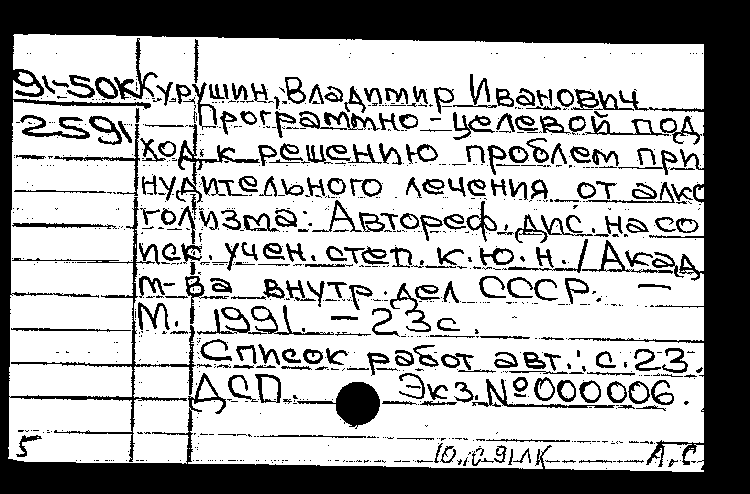 91-50К Курушин, Владимир Иванович
2591 Программно-целевой под
ход к решению проблем при
нудительного лечения от алко
голизма: Автореф. дис. на со
иск. учен. степ. к.ю.н. / Акад
м-ва внутр. дел СССР. —
М. 1991. — 23с.
Список работ авт.: с.23.
ДСП. Экз. № 000006.
5 А.С.